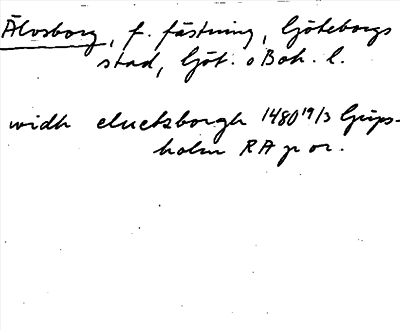 Älvsborg, f. fästning, Göteborgs
stad, Göt. o Boh. l.
widh eluetzborgh 1480 19/3 Grips-
holm RA p or.